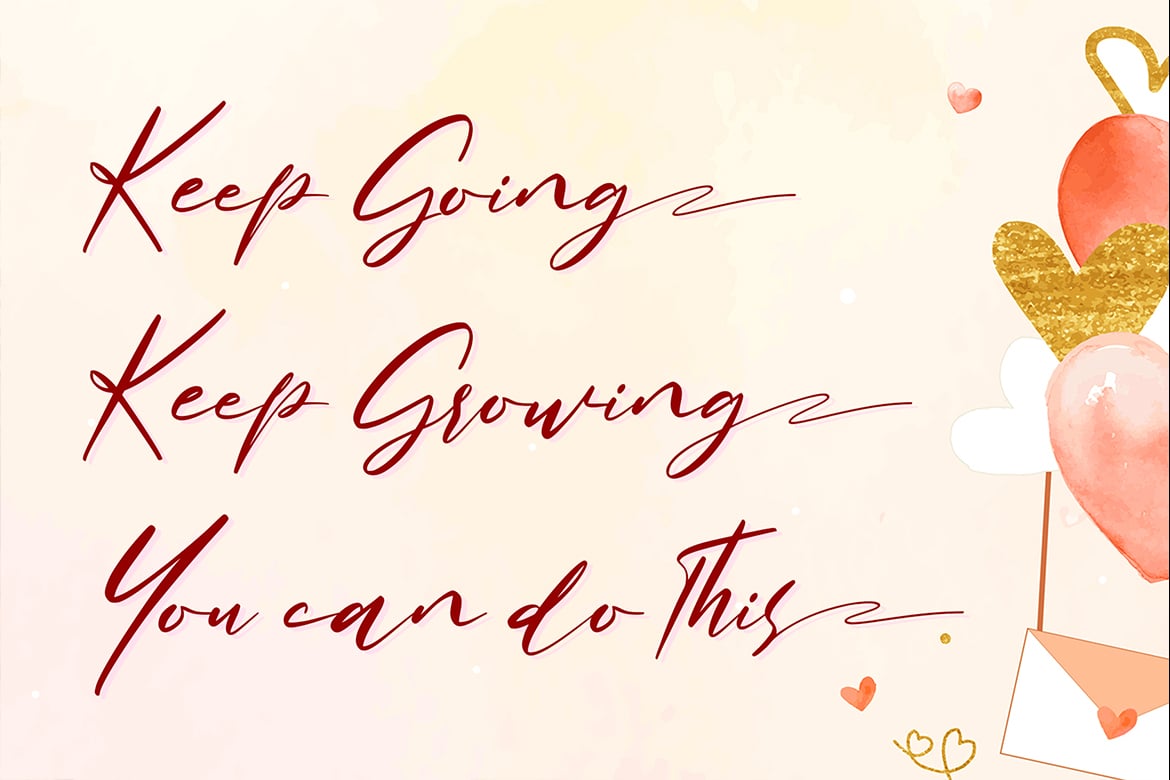 Keep Going
Keep Growing
You can do This